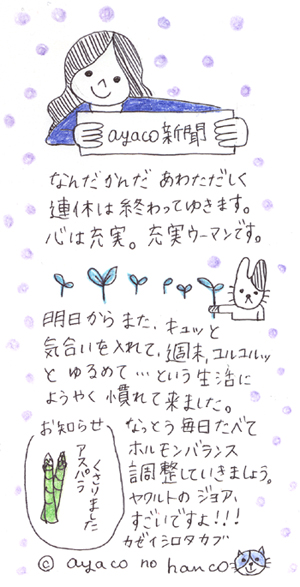 ayaco新聞
なんだかんだ あわただしく
連休は終わってゆきます。
心は充実。充実ウーマンです。
明日からまた、キュッと
気合いを入れて、週末、コルコルッ
と ゆるめて…という生活に
ようやく慣れて来ました。
お知らせ
アスパラ
くさりました
なっとう毎日たべて
ホルモンバランス
調整していきましょう。
ヤクルトの ジョア、
すごいですよ!!!
カゼイシロタカブ
© ayaco no hanco